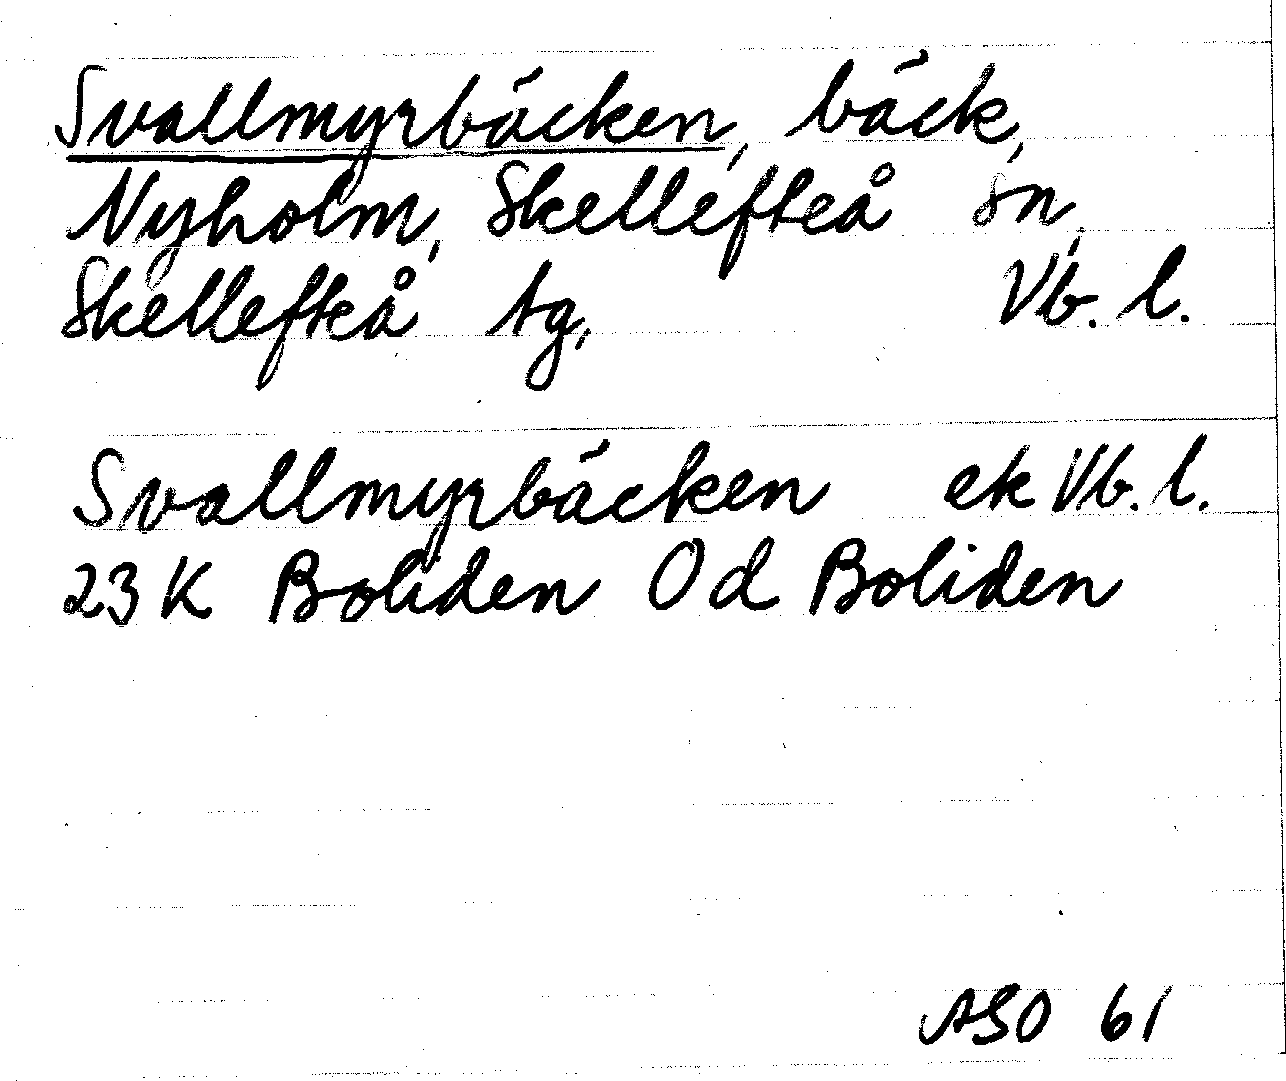 Svallmyrbäcken, bäck,
Nyholm, Skellefteå sn,
Skellefteå tg, Vb. l.
Svallmyrbäcken ek Vb. l.
23 K Boliden Od Boliden
ASO 61